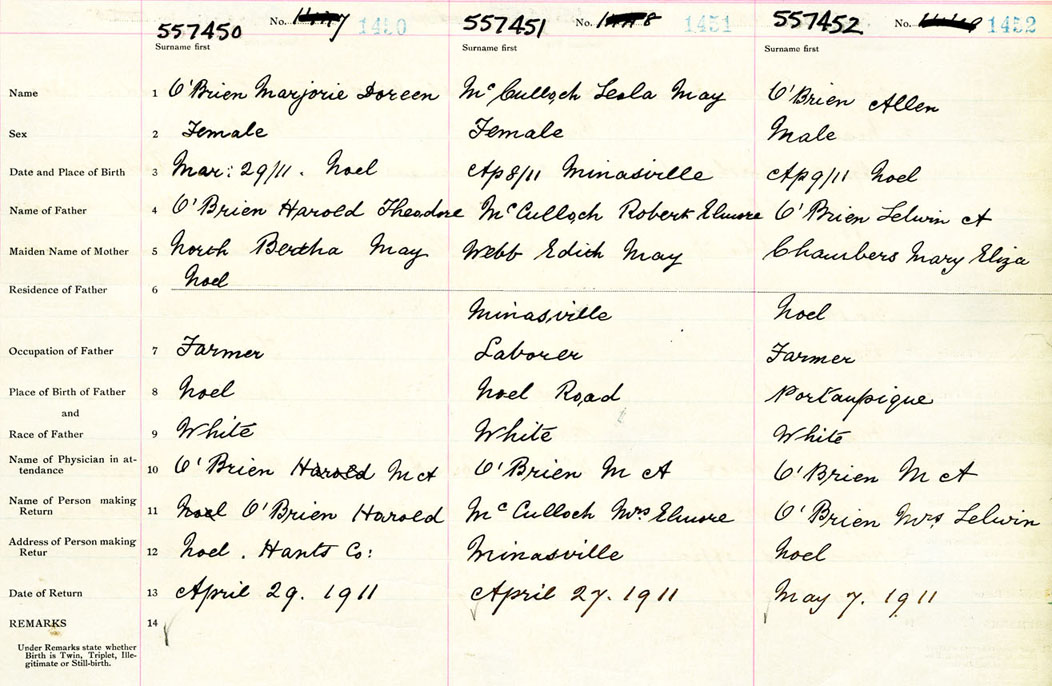 557450 No. 1450 557451 No. 1451 557452 No. 1452
Surname first Surname first Surname first
Name 1 O'Brien Marjorie Doreen McCulloch Leola May O'Brien Allen
Sex 2 Female Female Male
Date and Place of Birth 3 Mar: 29/11. Noel Ap 8/11 Minasville Ap 9/11 Noel
Name of Father 4 O'Brien Harold Theodore McCulloch Robert Elmore O'Brien Selwin A
Maiden Name of Mother 5 North Bertha May Webb Edith May Chambers Mary Eliza
Noel
Residence of Father 6
Minasville Noel
Occupation of Father 7 Farmer Laborer Farmer
Place of Birth of Father 8 Noel Noel Road Portaupique
and
Race of Father 9 White White White
Name of Physician in at-
tendance 10 O'Brien Harold M A O'Brien M A O'Brien M A
Name of Person making
Return 11 Noel O'Brien Harold McCulloch Mrs Elmore O'Brien Mrs Selwin
Address of Person making
Retur 12 Noel. Hants Co: Minasville Noel
Date of Return 13 April 29. 1911 April 27. 1911 May 7. 1911
REMARKS 14
Under Remarks state whether
Birth is Twin, Triplet, Ille-
gitimate or Still-birth.